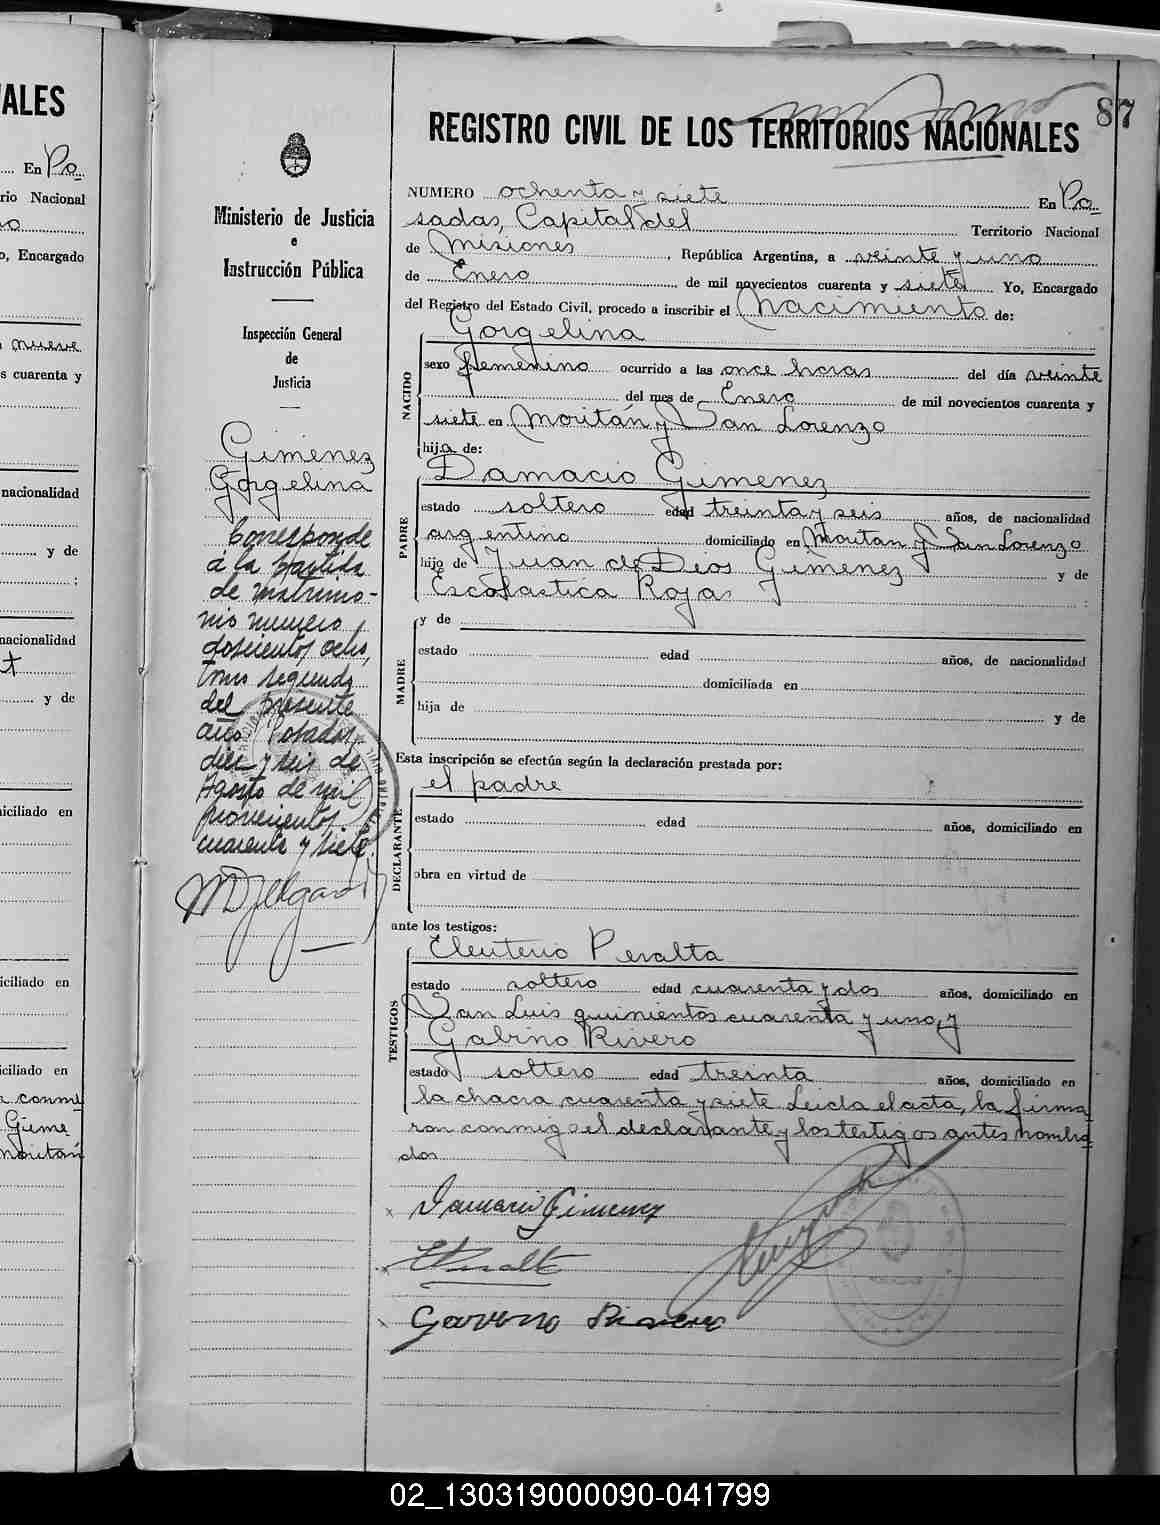 IALES
En Po
rio Nacional
o, Encargado
nueve
s cuarenta y
nacionalidad
y de
nacionalidad
y de
iciliado en
iciliado en
iciliado en
Gime
87
REGISTRO CIVIL DE LOS TERRITORIOS NACIONALES
Ministerio de Justicia
e
Instrucción Pública
Inspección General
de
Justicia
Gimenez
Gorgelina
Corresponde
a la partida
de matrimo-
nio numero
doscientos ocho,
tomo segundo
del presente
año Posadas,
diez y seis de
Agosto de mil
novecientos
cuarenta y siete.
NUMERO ochenta y siete En Po-
sadas, Capital del Territorio Nacional
de Misiones, República Argentina, a veinte y uno
de Enero de mil novecientos cuarenta y siete Yo, Encargado
del Registro del Estado Civil, procedo a inscribir el Nacimiento de:
NACIDO
Gorgelina
sexo femenino ocurrido a las once horas del día veinte
del mes de Enero de mil novecientos cuarenta y
siete en Moritán y San Lorenzo
hija de:
PADRE
Damacio Gimenez
estado soltero edad treinta y seis años, de nacionalidad
argentino domiciliado en Moritan y San Lorenzo
hijo de Juan de Dios Gimenez y de
Escolastica Rojas :
MADRE
y de
estado edad años, de nacionalidad
domiciliada en
hija de y de
Esta inscripción se efectúa según la declaración prestada por:
DECLARANTE
el padre
estado edad años, domiciliado en
obra en virtud de
ante los testigos:
TESTIGOS
Eleuterio Peralta
estado soltero edad cuarenta y dos años, domiciliado en
San Luis quinientos cuarenta y uno, y
Gabino Rivero
estado soltero edad treinta años, domiciliado en
la chacra cuarenta y siete Leida el acta, la firma
ron conmigo el declarante y los testigos antes nombra
dos
Damacio Gimenez
EPeralta
02_130319000090-041799